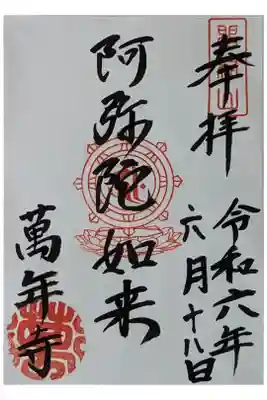 奉拝
令和六年
六月十八日
阿弥陀如来
萬年寺